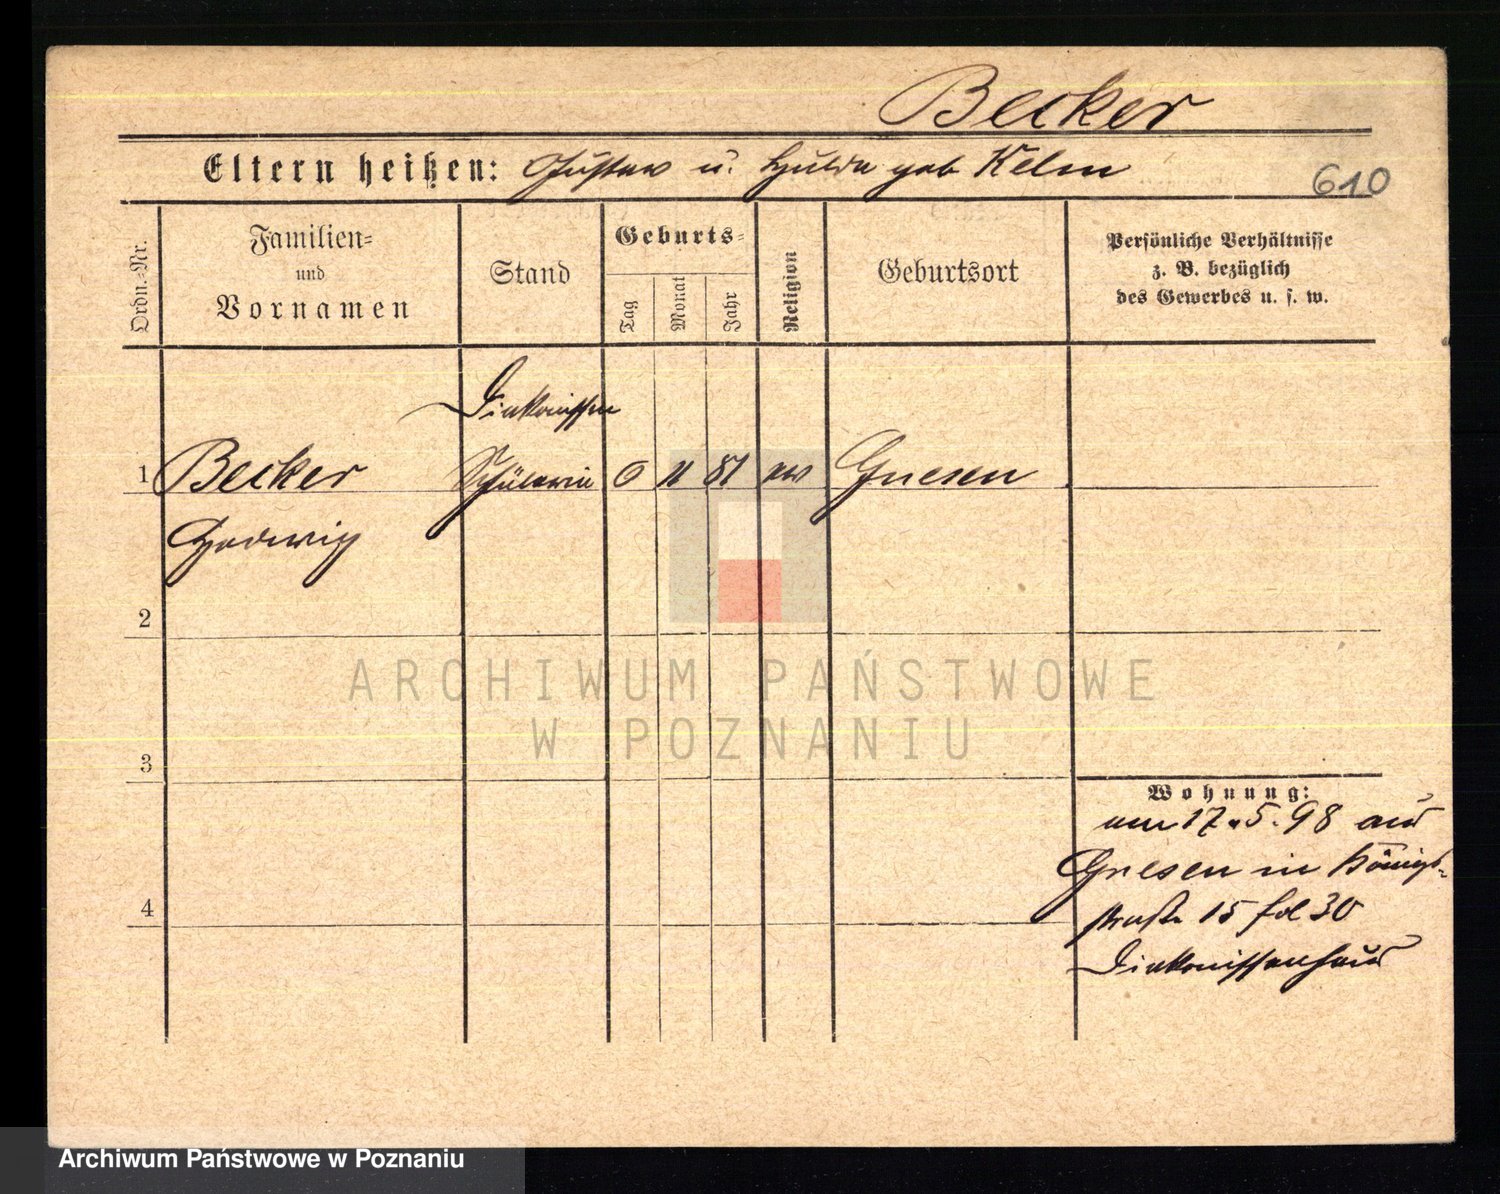 Becker
Eltern heißen: Gustav u. Hulda geb Kelm
610
Ordn.-Nr.
Familien-
und
Vornamen
Stand
Geburts-
Tag
Monat
Jahr
Religion
Geburtsort
Persönliche Verhältnisse
z. B. bezüglich
des Gewerbes u. s. w.
Diakonissen
1 Becker Schülerin 11 81 ev Gnesen
Hedwig
2
ARCHIWUM PAŃSTWOWE
W POZNANIU
3
Wohnung:
17.5.98 aus
Gnesen in Königs-
straße 15 fol 30
4
Diakonissenhaus
Archiwum Państwowe w Poznaniu